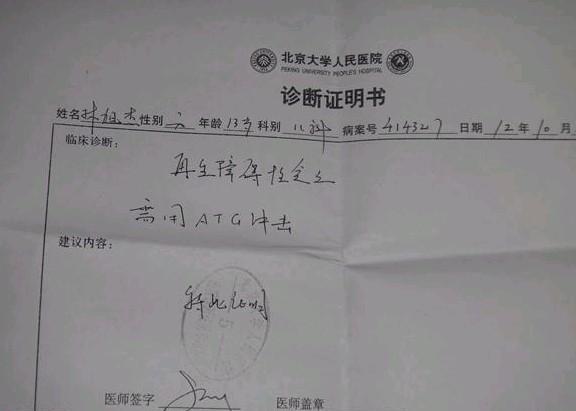 北京大学人民医院
PEKING UNIVERSITY PEOPLE'S HOSPITAL
诊断证明书
姓名 林祖杰 性别 女 年龄 13岁 科别 儿科 病案号 414327 日期 12年10月
临床诊断：
再生障碍性贫血
需用ATG冲击
建议内容：
特此证明
医师签字 医师盖章